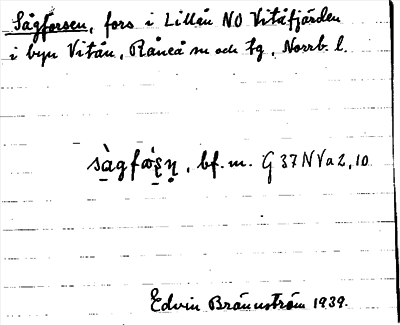 Sågforsen, fors i Lillån NO Vitåfjärden
i byn Vitån, Råneå sn och tg, Norrb. l.
bf. m. G 37 N V a 2, 10
Edvin Brännström 1939.